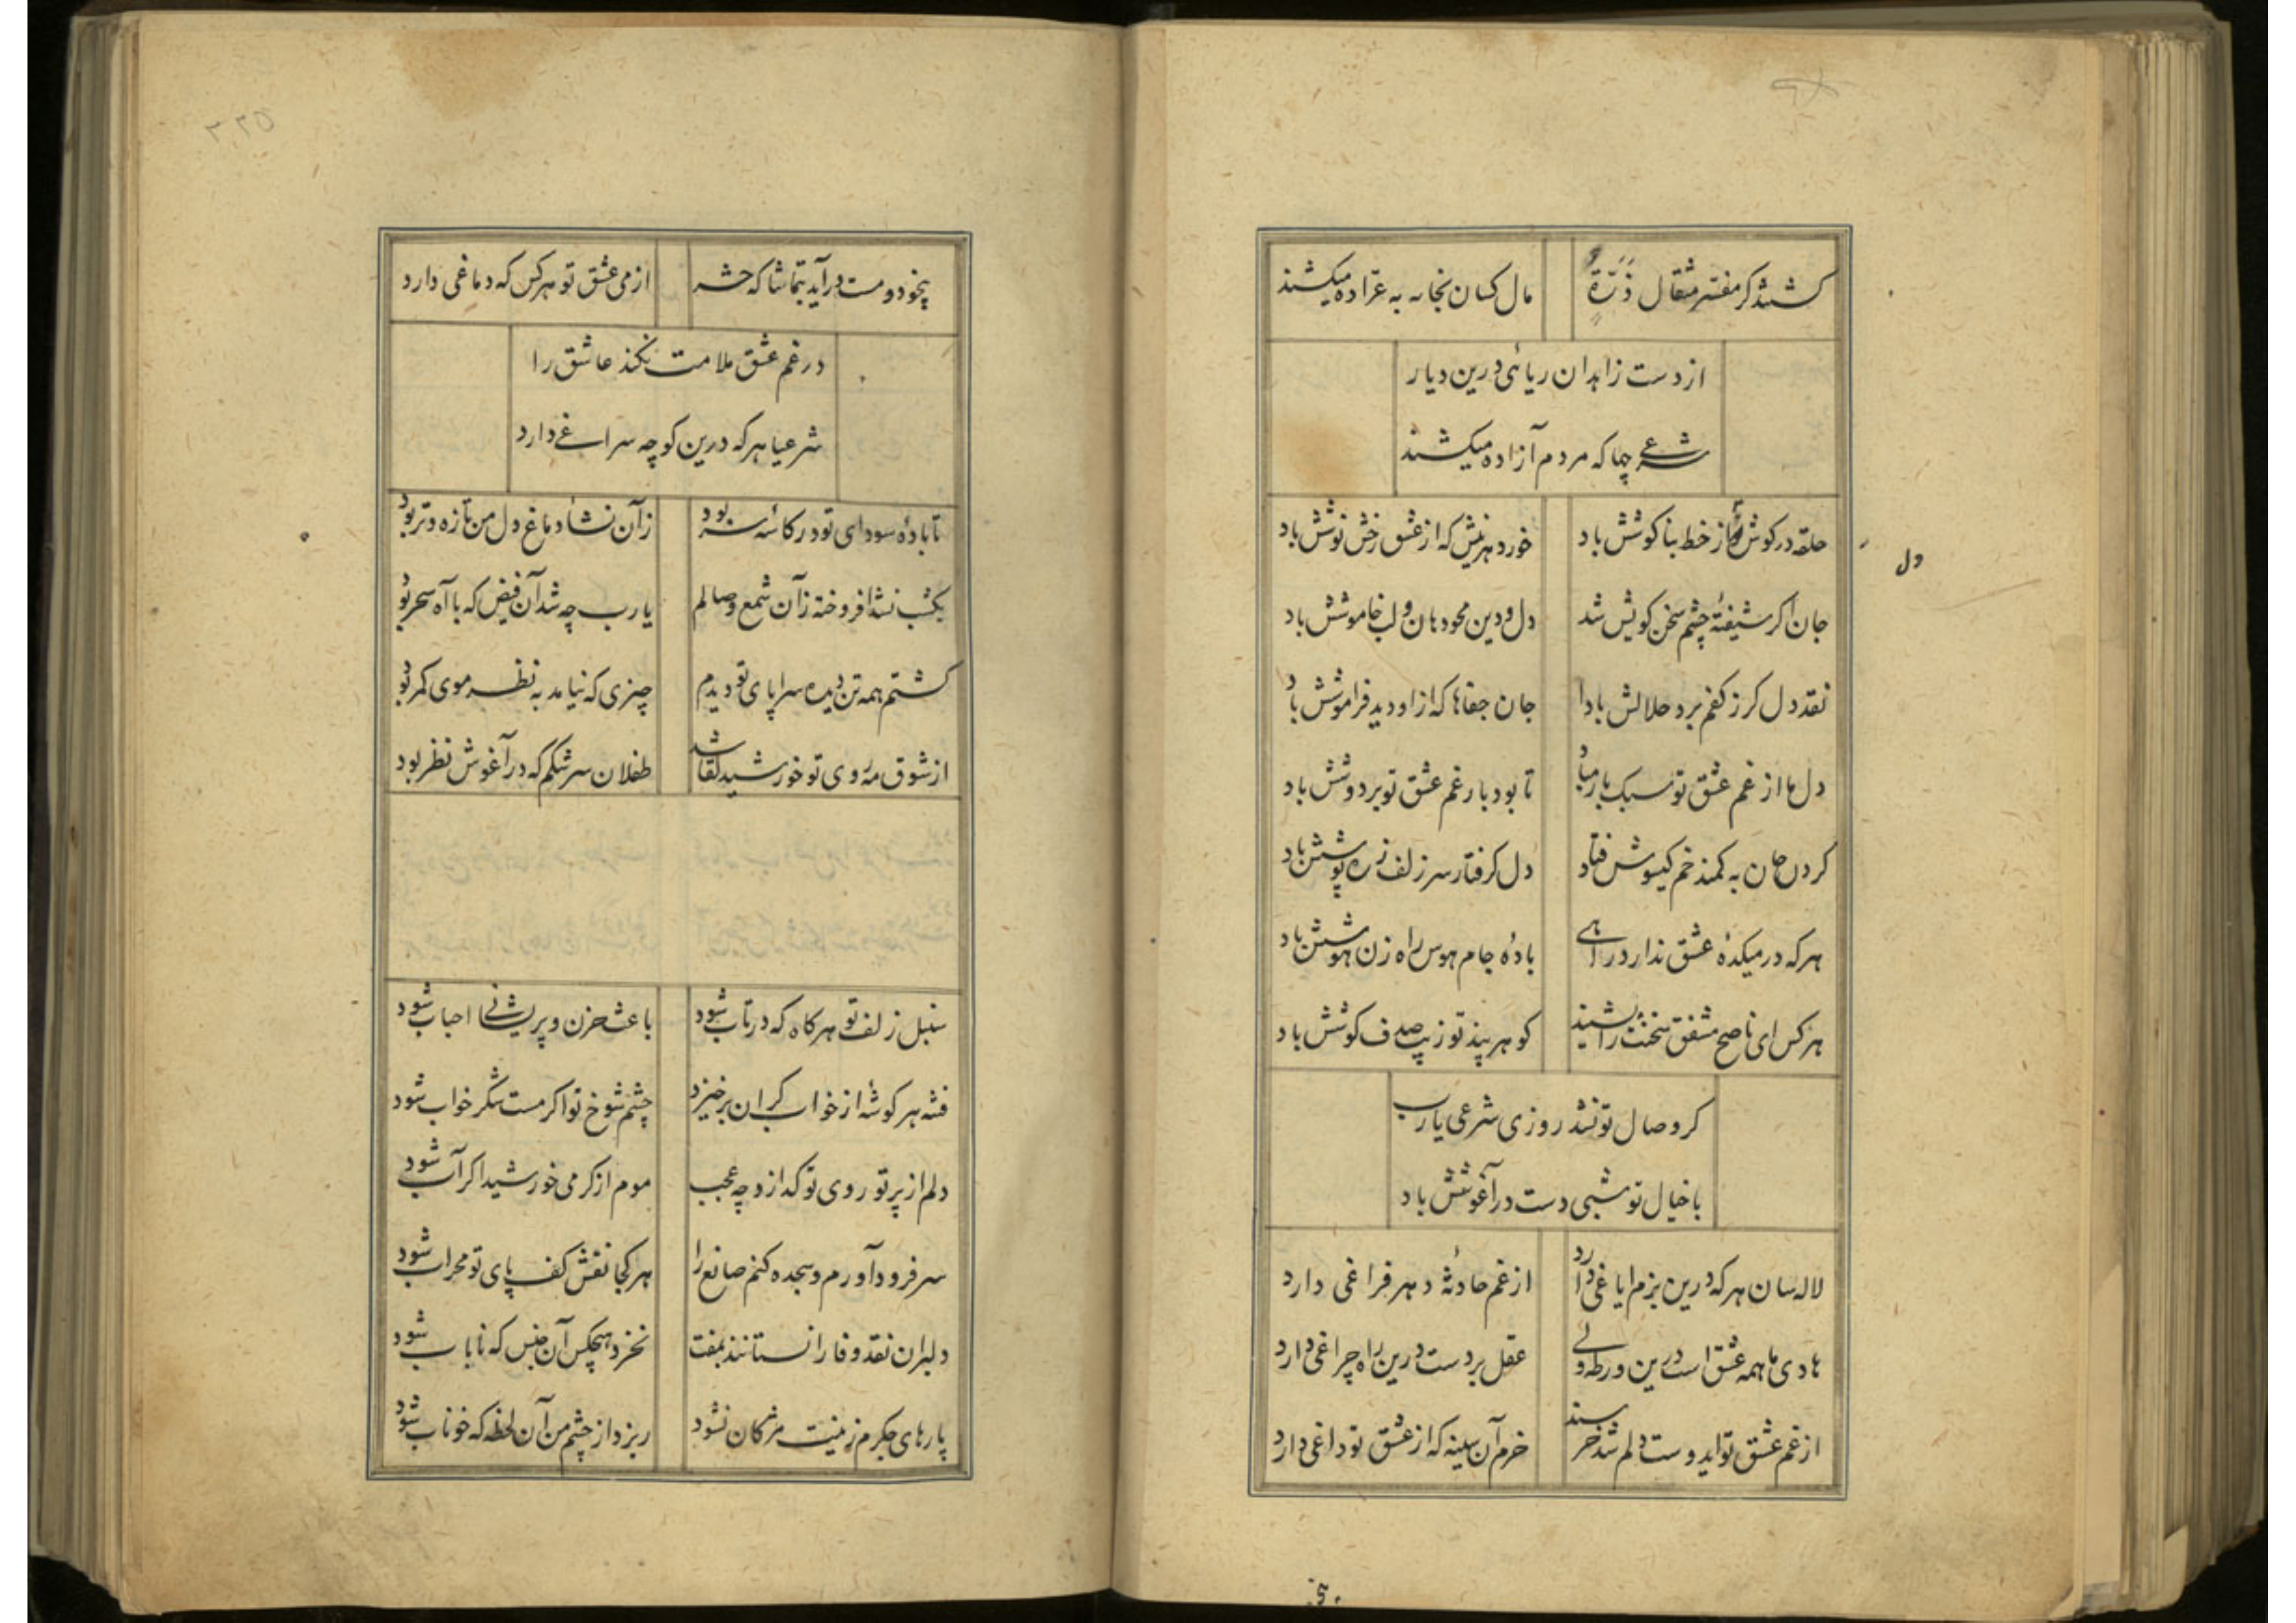 کشتند کر مفسر مثقال ذرة مال کسان بخانه به عراده میکشند
از دست زاهدان ریائی درین دیار
شرعی چها که مردم آزاده میکشند
دل
حلقه در کوش از خط بناکوشش باد خورد هر نیش که از عشق رخش نوشش باد
جان اکر شیفتهٔ چشم سخن کویش شد دل و دین محو دهان و لب خاموشش باد
نقد دل کر ز کفم برد حلالش بادا جان جفاها که ازو دید فراموشش باد
دل ما از غم عشق تو سبک بار مباد تا بود بار غم عشق تو بر دوشش باد
کردن جان به کمند خم کیسوش فتاد دل کرفتار سر زلف زره پوشش باد
هر که در میکدهٔ عشق ندارد راهی بادهٔ جام هوس راه زن هوشش باد
هر کس ای ناصح مشفق سخنت را نشنید کوهر پند تو زیب صدف کوشش باد
کر وصال تو نشد روزی شرعی یارب
با خیال تو شبی دست در آغوشش باد
لاله سان هر که درین بزم ایاغی دارد از غم حادثهٔ دهر فراغی دارد
هادی ما همه عشق است درین ورطه ولی عقل بر دست درین راه چراغی دارد
از غم عشق تو ایدوست دلم شد خرسند خرم آن سینه که از عشق تو داغی دارد
بی
۲۲۵
بیخود و مست درآید بتماشاکه حشر از می عشق تو هر کس که دماغی دارد
در غم عشق ملامت نکند عاشق را
شرعیا هر که درین کوچه سراغی دارد
تا بادهٔ سودای تو در کاسهٔ سر بود زآن نشأ دماغ دل من تازه و تر بود
یکشب نشد افروخته زآن شمع وصالم یارب چه شد آن فیض که با آه سحر بود
کشتم همه تن دیده سراپای تو دیدم چیزی که نیامد به نظر موی کمر بود
از شوق مه روی تو خورشید لقا شد طفلان سرشکم که در آغوش نظر بود
سنبل زلف تو هر کاه که در تاب شود باعث حزن و پریشانی احباب شود
فتنه هر کوشه از خواب کران برخیزد چشم شوخ تو اکر مست شکر خواب شود
دلم از پرتو روی تو کدازد چه عجب موم از کرمی خورشید اکر آب شود
سر فرود آورم و سجده کنم صانع را هر کجا نقش کف پای تو محراب شود
دلبران نقد وفا را نستانند بمفت نخرد هیچکس آن جنس که نایاب شود
پارهای جکرم زینت مژکان نشود ریزد از چشم من آن لحظه که خوناب شود